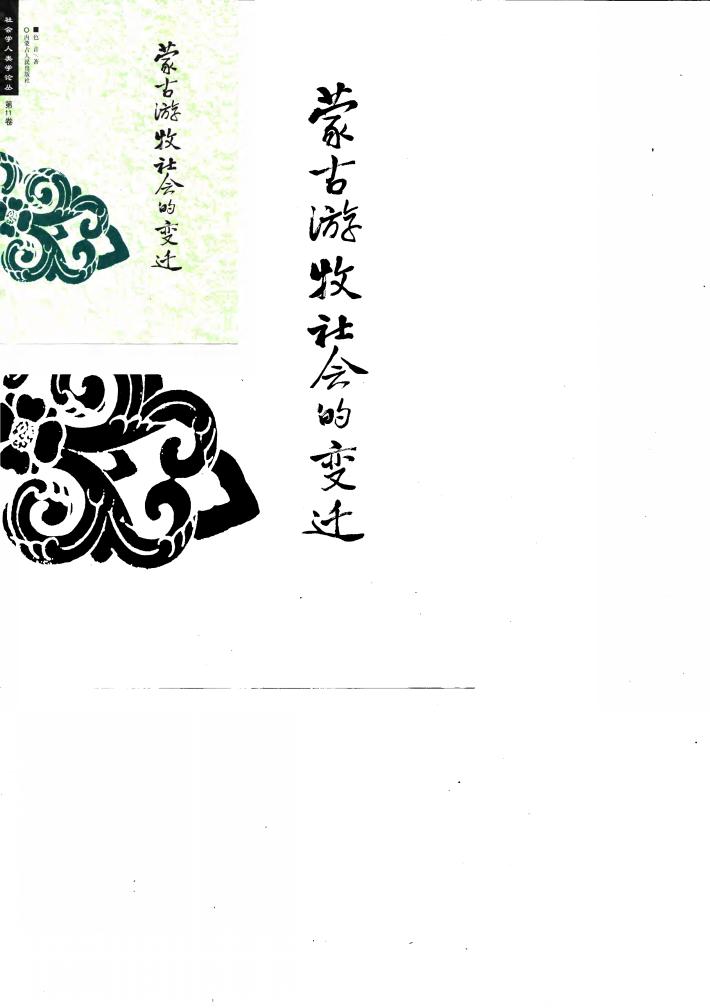 社会学人类学论丛 第11卷
■色音/著
○内蒙古人民出版社
蒙古游牧社会的变迁
蒙古游牧社会的变迁